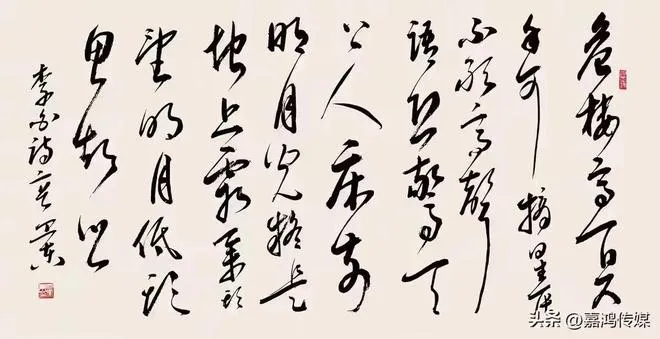 危楼高百尺
手可摘星辰
不敢高聲
語恐驚天
上人床前
明月光疑是
地上霜举头
望明月低头
思故乡
李白诗二首
头条 @嘉鸿传媒